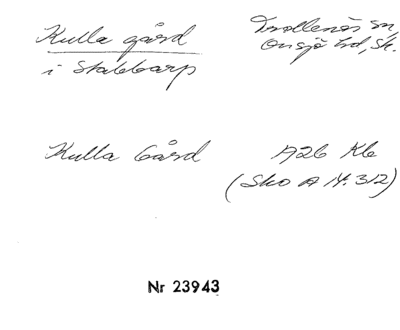 Kulla gård
i Stabbarp
Trollenäs sn,
Onsjö hd, Sk.
Kulla Gård
A26 K6
(Sko A IV:312)
Nr 23943